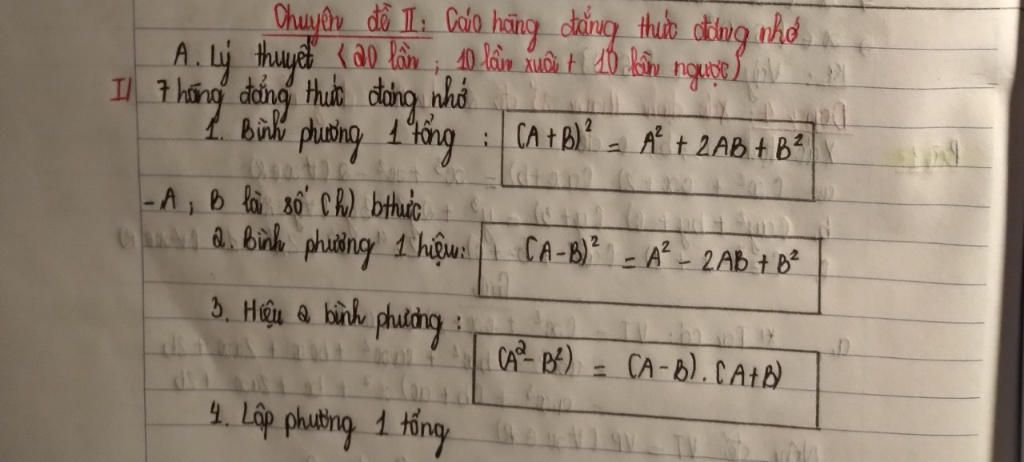 Chuyên đề II: Các hằng đẳng thức đáng nhớ
A. Lý thuyết (20 lần; 10 lần xuôi + 10 lần ngược)
I/ 7 hằng đẳng thức đáng nhớ
1. Bình phương 1 tổng: (A+B)² = A² + 2AB + B²
- A, B là số (h) bthức
2. Bình phương 1 hiệu: (A-B)² = A² - 2AB + B²
3. Hiệu 2 bình phương:
(A²-B²) = (A-B).(A+B)
4. Lập phương 1 tổng